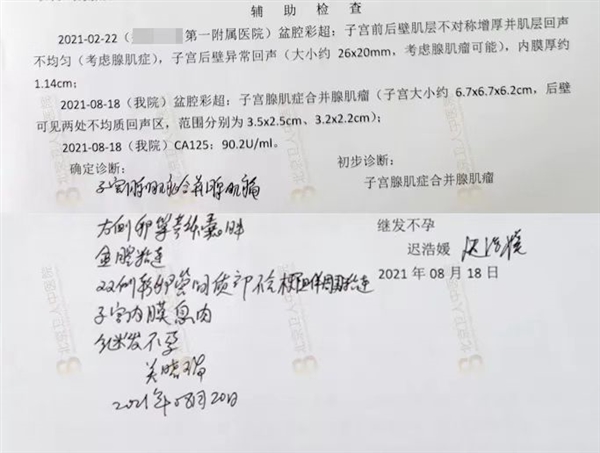 辅 助 检 查
2021-02-22（ 第一附属医院）盆腔彩超：子宫前后壁肌层不对称增厚并肌层回声
不均匀（考虑腺肌症），子宫后壁异常回声（大小约 26x20mm，考虑腺肌瘤可能），内膜厚约
1.14cm；
2021-08-18（我院）盆腔彩超：子宫腺肌症合并腺肌瘤（子宫大小约 6.7x6.7x6.2cm，后壁
可见两处不均质回声区，范围分别为 3.5x2.5cm、3.2x2.2cm）；
2021-08-18（我院）CA125：90.2U/ml。
确定诊断：
初步诊断：
子宫腺肌症合并腺肌瘤
子宫腺肌症合并腺肌瘤
继发不孕
迟浩媛 迟浩媛
2021 年 08 月 18 日
右侧卵巢囊肿
盆腔粘连
双侧输卵管间质部 梗阻伴周围粘连
子宫内膜息肉
继发不孕
关晓
2021年08月20日